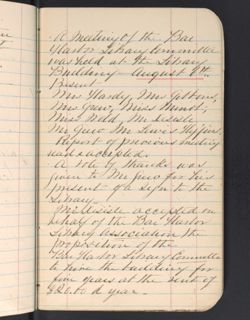 A meeting of the Bar
Harbor Library Committee
was held at the Library
Building - August 8th.
Present
Mrs Hardy, Mrs Gibbons,
Mrs Guro, Miss Minot,
Miss Wold, Mr
Mr Guro Mr Lewis
Report of previous meeting
was accepted.
A vote of thanks was
given to Mr Guro for his
present of a sign to the
Library.
accepted on
behalf of the Bar Harbor
Library Association the
proposition of the
Bar Harbor Library Committee
to hire the building for
five years at the rent of
a year.